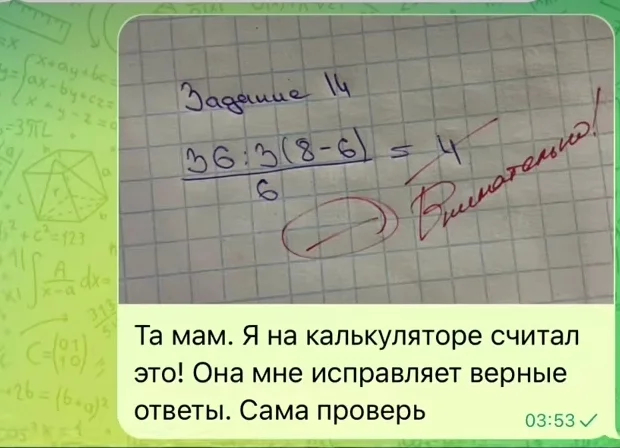 Задание 14
36:3(8-6) = 4
6
Внимательно!
Та мам. Я на калькуляторе считал
это! Она мне исправляет верные
ответы. Сама проверь
03:53